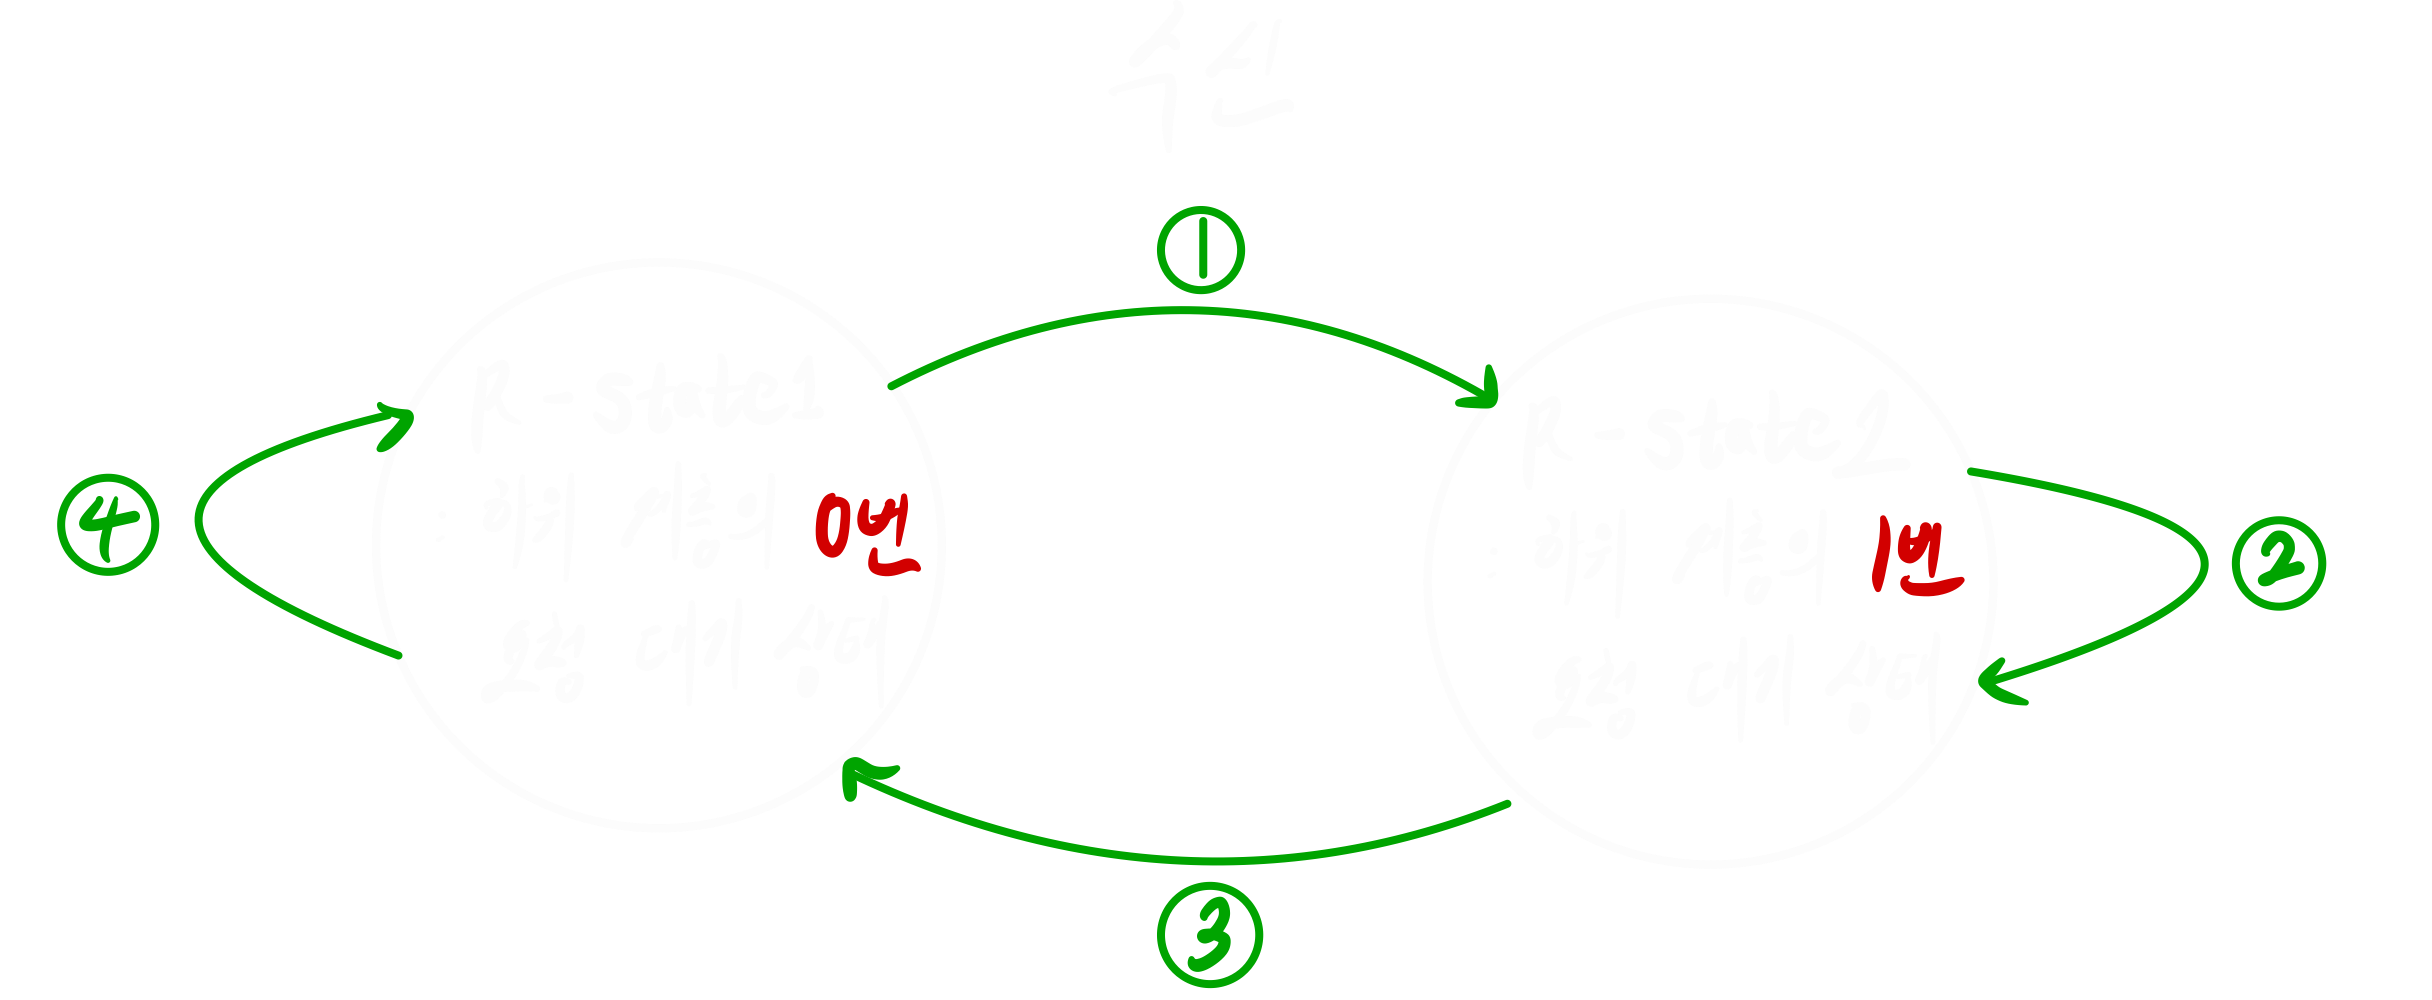 수신
①
R-state1
: 하위 계층의
0번
요청 대기 상태
R-state2
: 하위 계층의
1번
요청 대기 상태
④
②
③